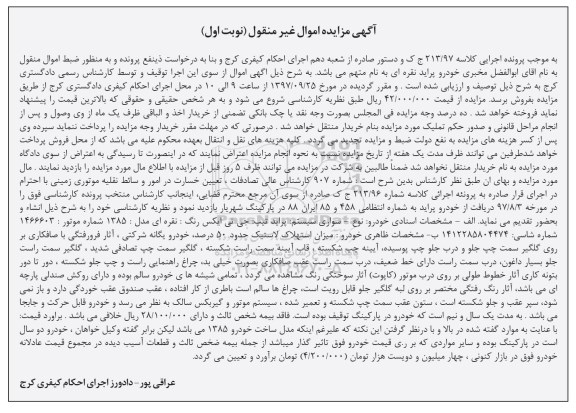 آگهی مزایده اموال غیر منقول (نوبت اول)
به موجب پرونده اجرایی کلاسه ۲۱۳/۹۷ ج ک و دستور صادره از شعبه دهم اجرای احکام کیفری کرج و بنا به درخواست ذینفع پرونده و به منظور ضبط اموال منقول
به نام آقای ابوالفضل مخبری خودرو پراید نقره ای به نام متهم می باشد. به شرح ذیل اگهی اموال از سوی این اجرا توقیف و توسط کارشناس رسمی دادگستری
کرج به شرح ذیل توصیف و ارزیابی شده است . و مقرر گردیده در مورخ ۱۳۹۷/۰۹/۲۵ از ساعت ۹ الی ۱۰ در محل اجرای احکام کیفری دادگستری کرج از طریق
مزایده بفروش برسد. مزایده از قیمت ۴۲/۰۰۰/۰۰۰ ریال طبق نظریه کارشناسی شروع می شود و به هر شخص حقیقی و حقوقی که بالاترین قیمت را پیشنهاد
نماید فروخته خواهد شد . ده درصد وجه مزایده فی المجلس بصورت وجه نقد یا چک بانکی تضمینی از خریدار اخذ و الباقی ظرف یک ماه از وی وصول و پس از
انجام مراحل قانونی و صدور حکم تملیک مورد مزایده بنام خریدار منتقل خواهد شد . درصورتی که در مهلت مقرر خریدار وجه مزایده را پرداخت ننماید سپرده وی
پس از کسر هزینه های مزایده به نفع دولت ضبط و مزایده تجدید می گردد. کلیه هزینه های نقل و انتقال بعهده محکوم علیه می باشد که از محل فروش پرداخت
خواهد شدطرفین می توانند ظرف مدت یک هفته از تاریخ مزایده نسبت به نحوه انجام مزایده اعتراض نمایند که در اینصورت تا رسیدگی به اعتراض از سوی دادگاه
مورد مزایده به نام خریدار منتقل نخواهد شد ضمنا طالبین به شرکت در مزایده می توانند ظرف ۵ روز قبل از مزایده با اطلاع مال مورد مزایده را بازدید نمایند . مال
مورد مزایده و بهای ان طبق نظر کارشناس بدین شرح است: شماره ۹۰۷ کارشناس عالی تصادفات ، تعیین خسارت در امور و سائط نقلیه موتوری زمینی با احترام
در اجرای قرار صادره به پرونده اجرائی کلاسه شماره ۲۱۳/۹۶ ج ک صادره از سوی آن مرجع محترم قضایی، اینجانب کارشناس منتخب پرونده کارشناسی فوق را
در مورخه ۹۷/۸/۳ دریافت از خودرو پراید به شماره انتظامی ۴۵۸ و ۸۵ ایران ۸۸ در پارکینگ شهریار بازدید نمود و نظریه کارشناسی خود را به شرح ذیل انشاء و
بحضور تقدیم می نماید. الف - مشخصات اسنادی خودرو: نوع - سواری سیستم پراید تیپ: جی تی ایکس رنگ : نقره ای مدل : ۱۳۸۵ شماره موتور : ۱۴۶۶۶۰۳
شماره شاسی: ۱۴۱۲۲۸۵۸۰۴۴۷۴ ب- مشخصات ظاهری خودرو : میزان استهلاک لاستیک حدود ۵۰ درصد، خودرو یگانه شرکتی ، آثار فرورفتگی با صافکاری بر
روی گلگیر سمت چپ جلو و درب جلو چپ پوسیده، آیینه چپ شکسته ، قاب آیینه سمت راست شکسته ، گلگیر سمت چپ تصادفی شدید ، گلگیر سمت راست
جلو بسیار داغون، درب سمت راست دارای خط ضعیف، درب سمت راست عقب صافکاری بصورت خیلی بد، چراغ راهنمایی راست و چپ جلو شکسته ، دور تا دور
بتونه کاری آثار خطوط طولی بر روی درب موتور (کاپوت) آثار سوختگی رنگ مشاهده می گردد ، تمامی شیشه ها ی خودرو سالم بوده و دارای روکش صندلی پارچه
ای می باشد، آثار رنگ رفتگی مختصر بر روی لبه گلگیر جلو قابل رویت است، چراغ ها سالم است باطری از کار افتاده ، عقب صندوق عقب خوردگی دارد و باز نمی
شود، سپر عقب و جلو شکسته است ، ستون عقب سمت چپ شکسته و تعمیر شده ، سیستم موتور و گیربکس سالک به نظر می رسد و خودرو قابل حرکت و جابجا
می باشد . به مدت یک سال و نیم است که خودرو در پارکینگ توقیف بوده است. فاقد بیمه شخص ثالث و دارای ۲۸/۱۰۰/۰۰۰ ریال خلافی می باشد . براورد قیمت:
با عنایت به موارد گفته شده در بالا و با درنظر گرفتن این نکته که علیرغم اینکه مدل ساخت خودرو ۱۳۸۵ می باشد لیکن برابر گفته وکیل خواهان ، خودرو دو سال
است در پارکینگ بوده و سایر مواردی که بر ری قیمت خودرو فوق تاثیر گذار میباشد از جمله بیمه شخص ثالث و قطعات آسیب دیده در مجموع قیمت عادلانه
خودرو فوق در بازار کنونی ، چهار میلیون و دویست هزار تومان (۴/۲۰۰/۰۰۰) تومان برآورد و تعیین می گردد.
عراقی پور- دادورز اجرای احکام کیفری کرج